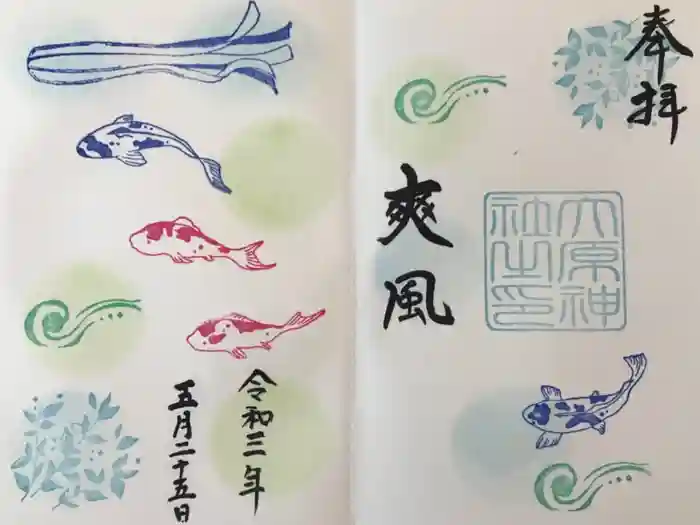 奉拝
六原神
社之印
爽風
令和三年
五月二十五日